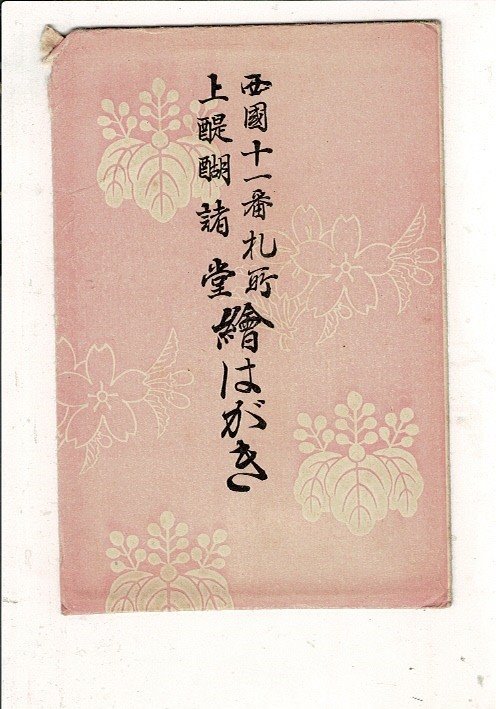 西國十一番札所
上醍醐諸堂
繪はがき